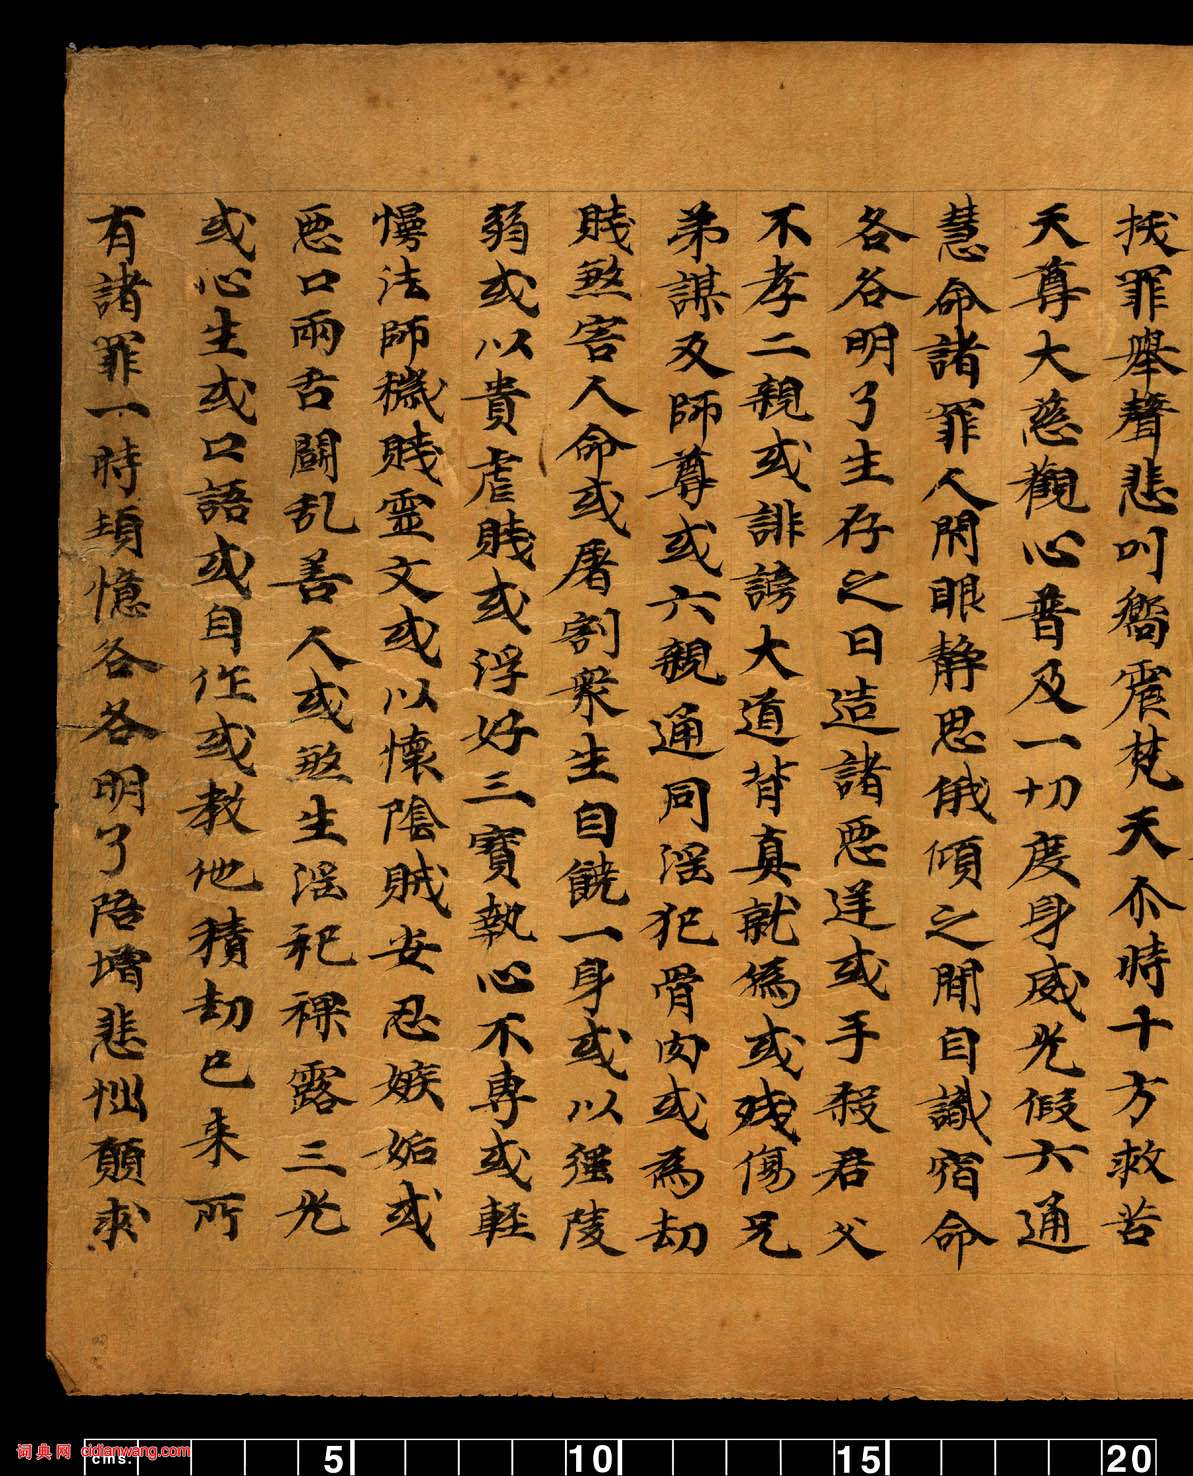 拔罪舉聲悲叫響震梵天尒時十方救苦
天尊大慈觀心普及一切度身威光假六通
慧命諸罪人閇眼静思俄傾之間自識宿命
各各明了生存之日造諸惡逆或手殺君父
不孝二親或誹謗大道背真就偽或殘傷兄
弟謀及師尊或六親通同淫犯骨肉或為劫
賊煞害人命或屠割衆生自饒一身或以強陵
弱或以貴虐賤或浮好三寶執心不專或輕
慢法師穢賤靈文或以懷陰賊安忍嫉妬或
惡口兩舌鬭乱善人或煞生淫祀裸露三光
或心生或口語或自作或教他積劫已来所
有諸罪一時頓憶各各明了陪增悲惱願求
5
10
15
20
cms.
词典网 cidianwang.com